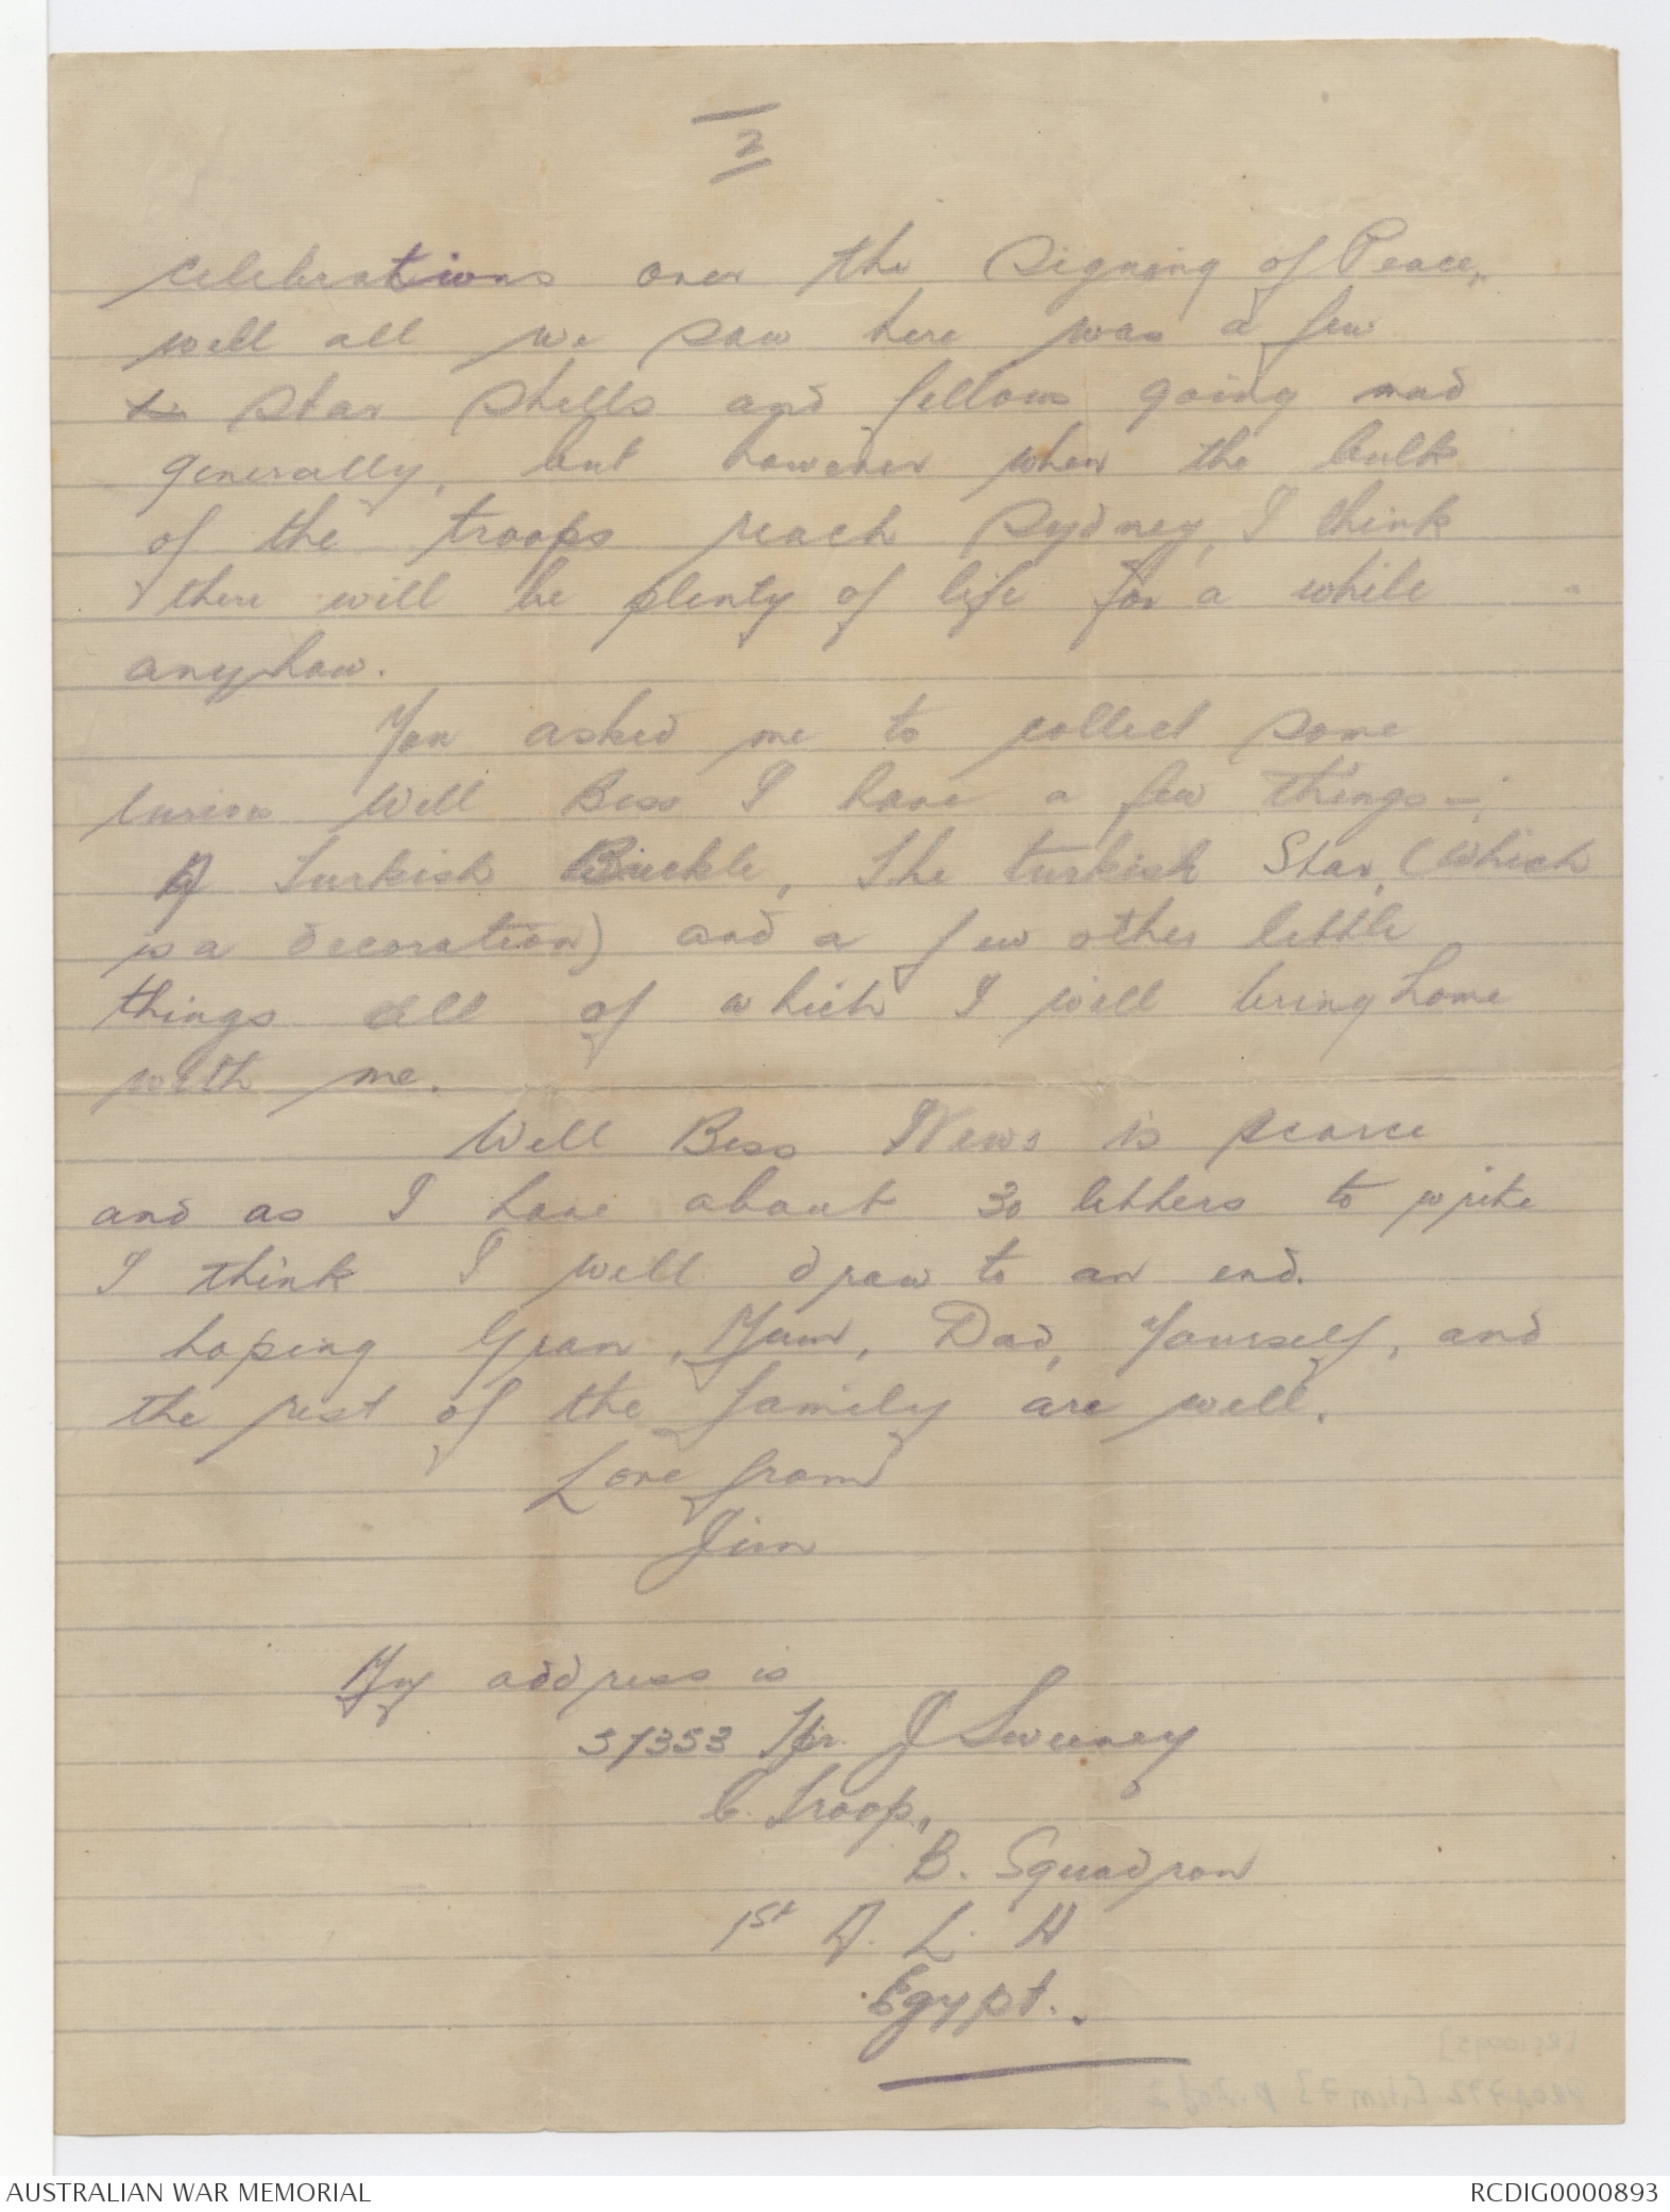 2
celebrations over the Signing of Peace,
well all we saw here was a few
star shells and fellows going mad
generally, but however when the bulk
of the troops reach Sydney, I think
there will be plenty of life for a while
anyhow.
You asked me to collect some
curios Well Bess I have a few things -;
A Turkish Buckle, The turkish Star, (which
is a decoration) and a few other little
things all of which I will bring home
with me.
Well Bess News is scarce
and as I have about 30 letters to write
I think I will draw to an end.
hoping Gran, Mum, Dad, Yourself, and
the rest of the family are well.
Love from
Jim
My address is
57353 Tpr. J Sweeney
C. Troop,
B. Squadron
1st A. L. H
Egypt.
AUSTRALIAN WAR MEMORIAL
RCDIG0000893